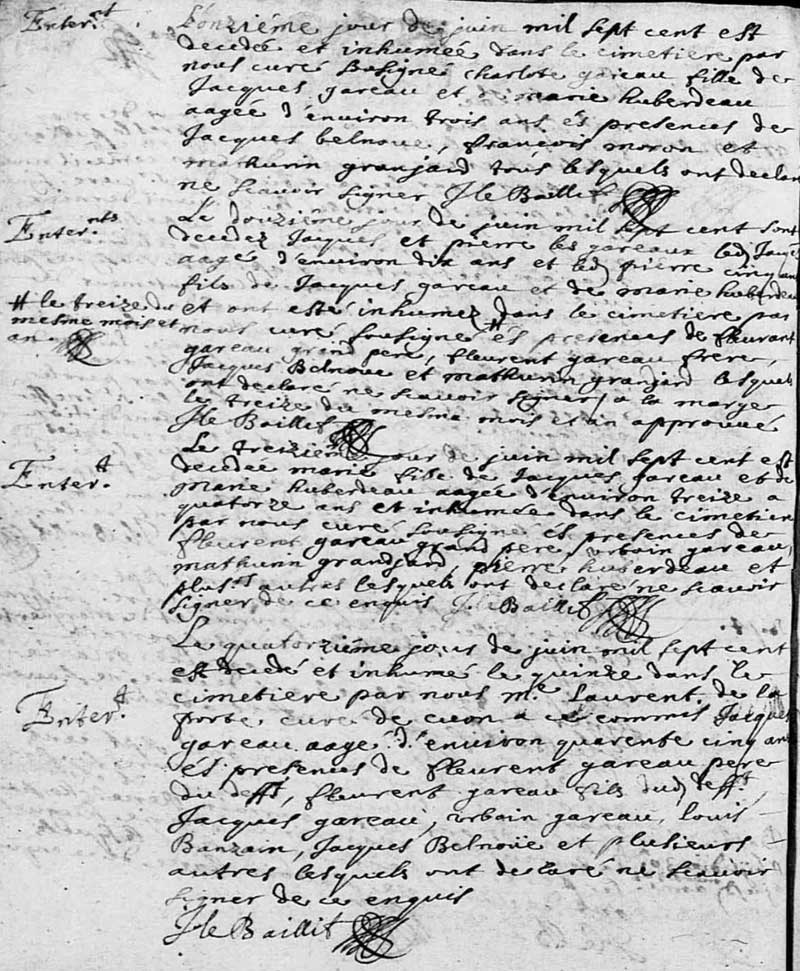 Enter.nt
L'onziéme jour de juin mil sept cent est
decedée et inhumée dans le cimetiere par
nous curé Sousigné charlote gareau fille de
Jacques gareau et de marie huberdeau
aagée d'environ trois ans és presences de
Jacques belnoue, françois moron et
mathurin granjard tous lesquels ont declaré
ne scavoir signer J le Baillif
Enter.nts
Le douziéme jour de juin mil sept cent sont
decedez Jacques et pierre les gareaux led. Jacques
aagé d'environ dix ans et led. pierre cinq ans
fils de Jacques gareau et de marie huberdeau
et ont esté inhumez dans le cimetiere par
# le treize du
mesme mois et
an.
nous curé sousigné # és presences de fleurant
gareau grand pere, fleurent gareau frere,
Jacques Belnoue et mathurin granjard lesquels
ont declaré ne scavoir signer / a la marge
le treize du mesme mois et an approuvé
J le Baillif
Enter.t
Le treiziéme jour de juin mil sept cent est
decedée marie fille de Jacques gareau et de
marie huberdeau aagée d'environ treize a
quatorze ans et inhumée dans le cimetiere
par nous curé sousigné és presences de
fleurent gareau grand pere, urbain gareau,
mathurin grandjard, pierre huberdeau et
plus.rs autres lesquels ont declaré ne scavoir
signer de ce enquis J. le Baillif
Enter.t
Le quatorziéme jour de juin mil sept cent
est decedé et inhumé le quinze dans le
cimetiere par nous m.e Laurent de la
porte curé de cuon a ce commis Jacques
gareau aagé d'environ quarente cinq ans
és presences de fleurent gareau pere
du deff.t, fleurent gareau fils dud. deff.t
Jacques gareau, urbain gareau, louis
Banzain, Jacques Belnoüe et plusieurs
autres lesquels ont declaré ne scavoir
signer de ce enquis
J le Baillif